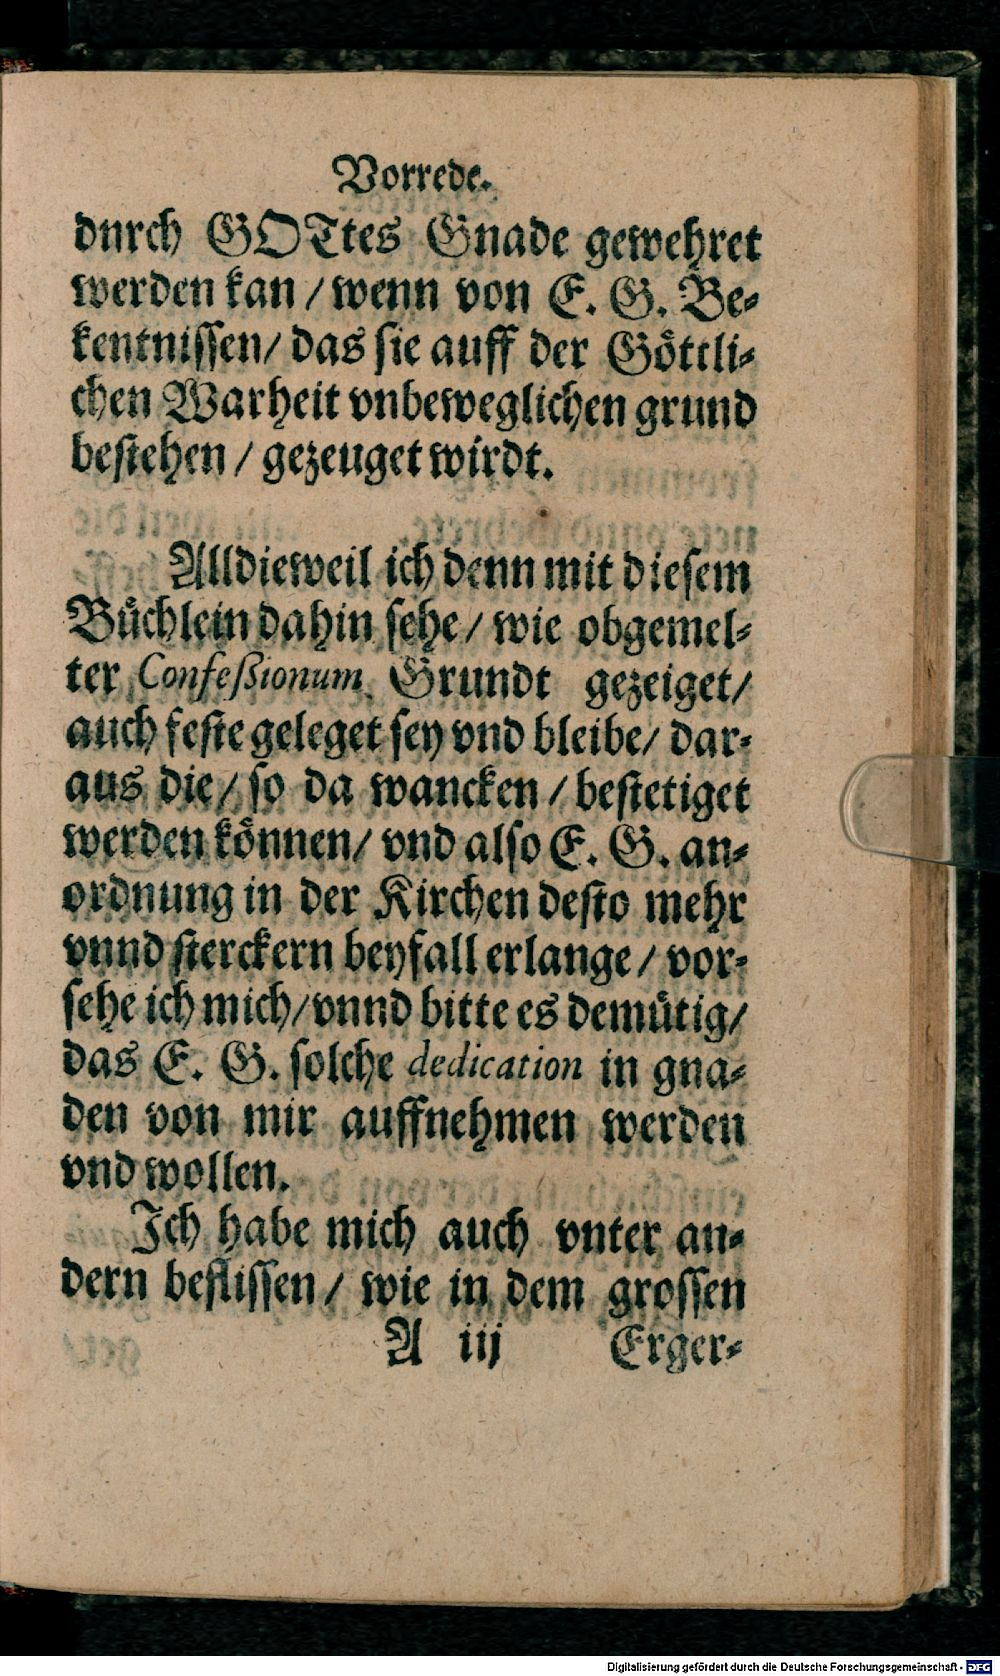 Vorrede.
dnrch GOTtes Gnade gewehret
werden kan / wenn von E. G. Be-
kentnissen/ das sie auff der Göttli-
chen Warheit vnbeweglichen grund
bestehen / gezeuget wirdt.
Alldieweil ich denn mit diesem
Büchlein dahin sehe / wie obgemel-
ter Confeßionum Grundt gezeiget/
auch feste geleget sey vnd bleibe/ dar-
aus die / so da wancken / bestetiget
werden können/ vnd also E. G. an-
ordnung in der Kirchen desto mehr
vnnd sterckern beyfall erlange / vor-
sehe ich mich/vnnd bitte es demütig/
das E. G. solche dedication in gna-
den von mir auffnehmen werden
vnd wollen.
Ich habe mich auch vnter an-
dern beflissen / wie in dem grossen
A iij Erger-
Digitalisierung gefördert durch die Deutsche Forschungsgemeinschaft - DFG